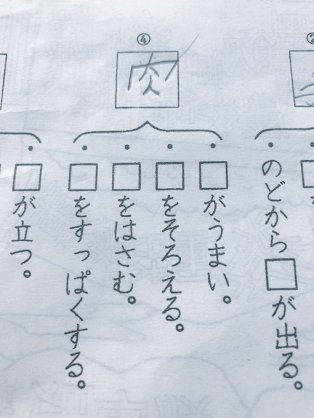 のどから□が出る。
④
肉
□がうまい。
□をそろえる。
□をはさむ。
□をすっぱくする。
□が立つ。